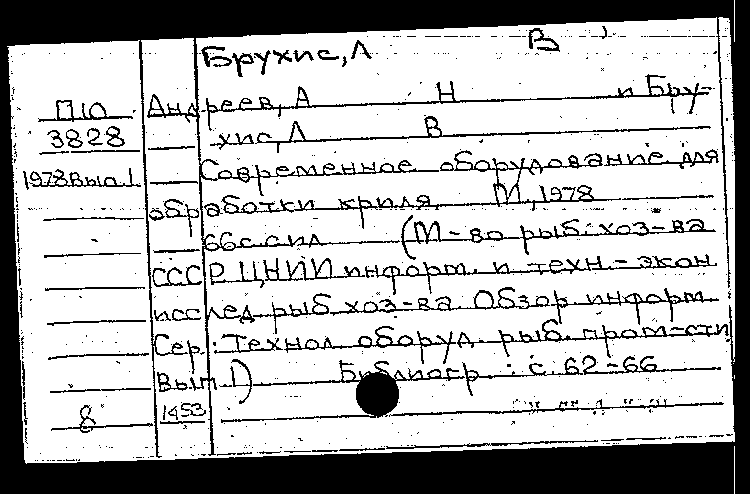 Брухис, Л В
П10 Андреев, А Н и Бру-
3828 хис, Л В
1978 Вып. 1 Современное оборудование для
обработки криля. М., 1978
66 с. с ил (М-во рыб. хоз-ва
СССР. ЦНИИ информ. и техн.-экон
исслед. рыб. хоз-ва. Обзор. информ.
Сер.: Технол. оборуд. рыб. пром-сти
Вып. 1) Библиогр.: с. 62-66
8 1453